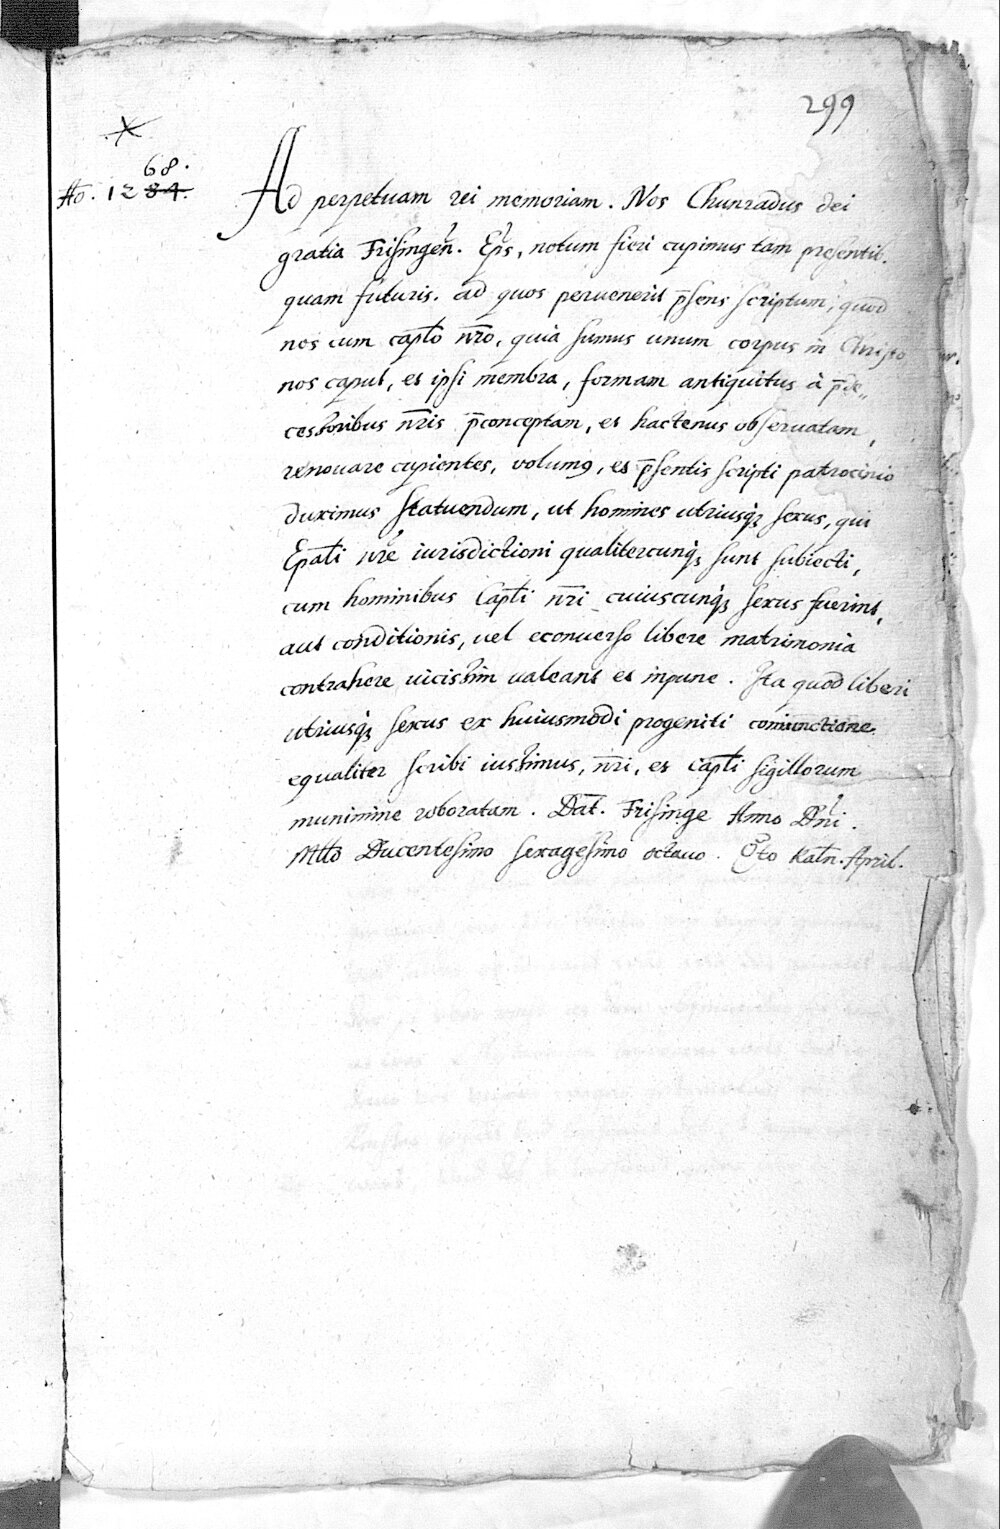 299
*
68.
Ao. 1284.
Ad perpetuam rei memoriam. Nos Chunradus dei
gratia Frisingēn. Ep̄s, notum fieri cupimus tam presentib.
quam futuris. ad quos peruenerit p̄sens scriptum, quod
nos cum cap̄lo nr̄o, quia sumus unum corpus in Christo
nos caput, et ipsi membra, formam antiquitus à p̄de„
cessoribus nr̄is p̄conceptam, et hactenus obseruatam,
renouare cupientes, volumꝰ, et p̄sentis scripti patrocinio
duximus statuendum, ut homines utriusqꝫ sexus, qui
Ep̄ali nr̄e iurisdictioni qualitercunqꝫ sunt subiecti,
cum hominibus Cap̄li nr̄i cuiuscunqꝫ sexus fuerint,
aut conditionis, uel econuerso libere matrimonia
contrahere uicissim ualeant et inpune. Ita quod liberi
utriusqꝫ sexus ex huiusmodi progeniti coniunctione
equaliter scribi iussimus, nr̄i, et cap̄li sigillorum
munimine roboratam. Dat̄. Frisinge Anno Dn̄i.
Mll̄o Ducentesimo sexagesimo octauo. Kal̄n. April.